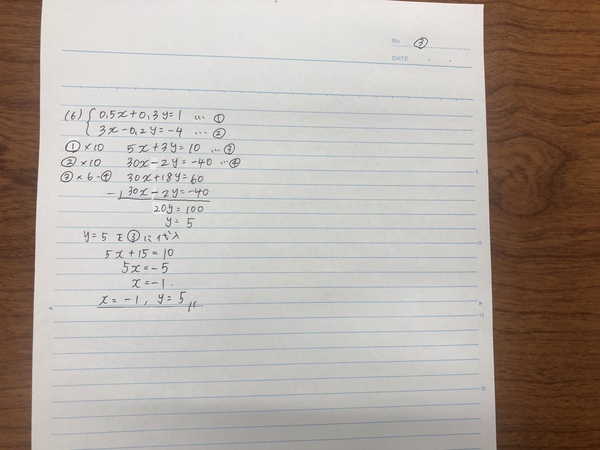 No. ③
DATE . .
(6) { 0.5x+0.3y=1 … ①
3x-0.2y=-4 … ②
①×10 5x+3y=10 … ③
②×10 30x-2y=-40 … ④
③×6-④ 30x+18y=60
-) 30x-2y=-40
20y=100
y=5
y=5を③に代入
5x+15=10
5x=-5
x=-1.
x=-1, y=5〃
5
10
15
20